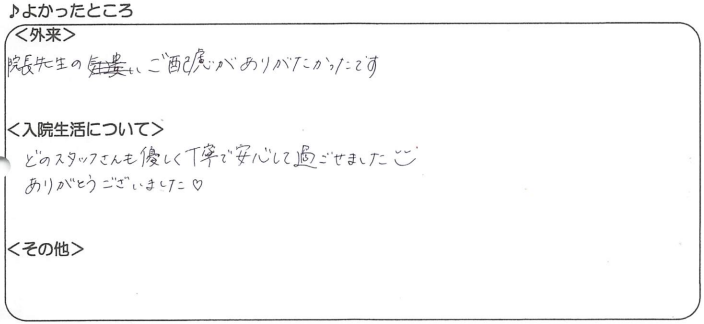 ♪よかったところ
＜外来＞
院長先生の ご配慮がありがたかったです
＜入院生活について＞
どのスタッフさんも優しく丁寧で安心して過ごせました
ありがとうございました♡
＜その他＞